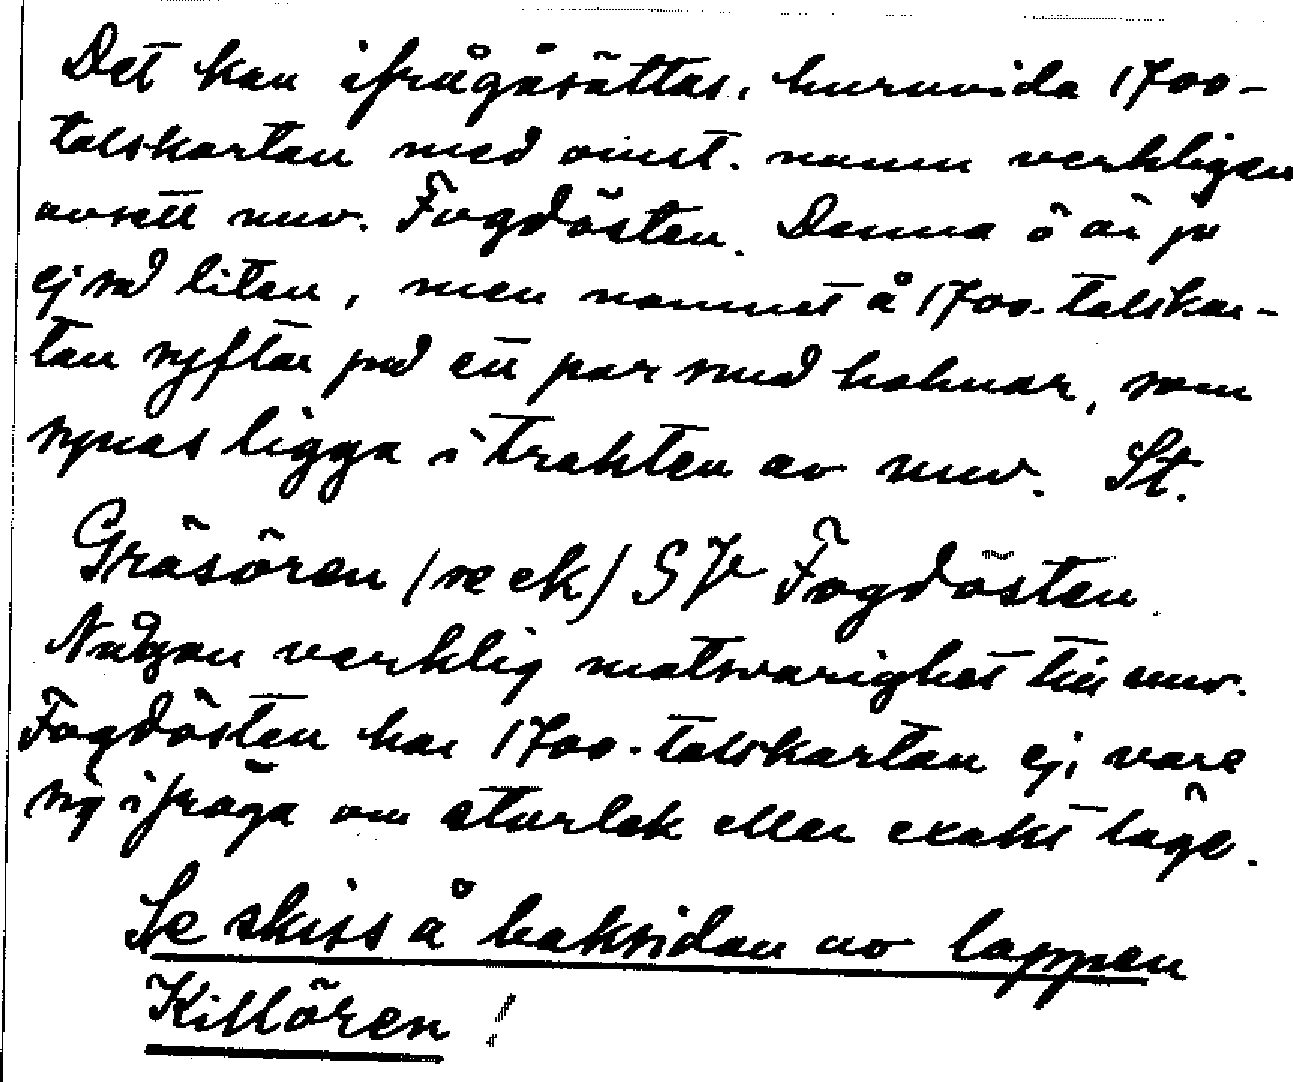 Det kan ifrågasättas, huruvida 1700-
talskartan med ovinst. namn verkligen
avsett nuv. Fogdösten. Denna ö är ju
ej så liten, men namnet å 1700-talskar-
tan syftar på ett par små holmar, som
synas ligga i trakten av nuv. St.
Gräsören (se ek) SV Fogdösten.
Någon verklig motsvarighet till nuv.
Fogdösten har 1700-talskartan ej, vare
sig ifråga om storlek eller exakt läge.
Se skiss å baksidan av lappen
Killören!